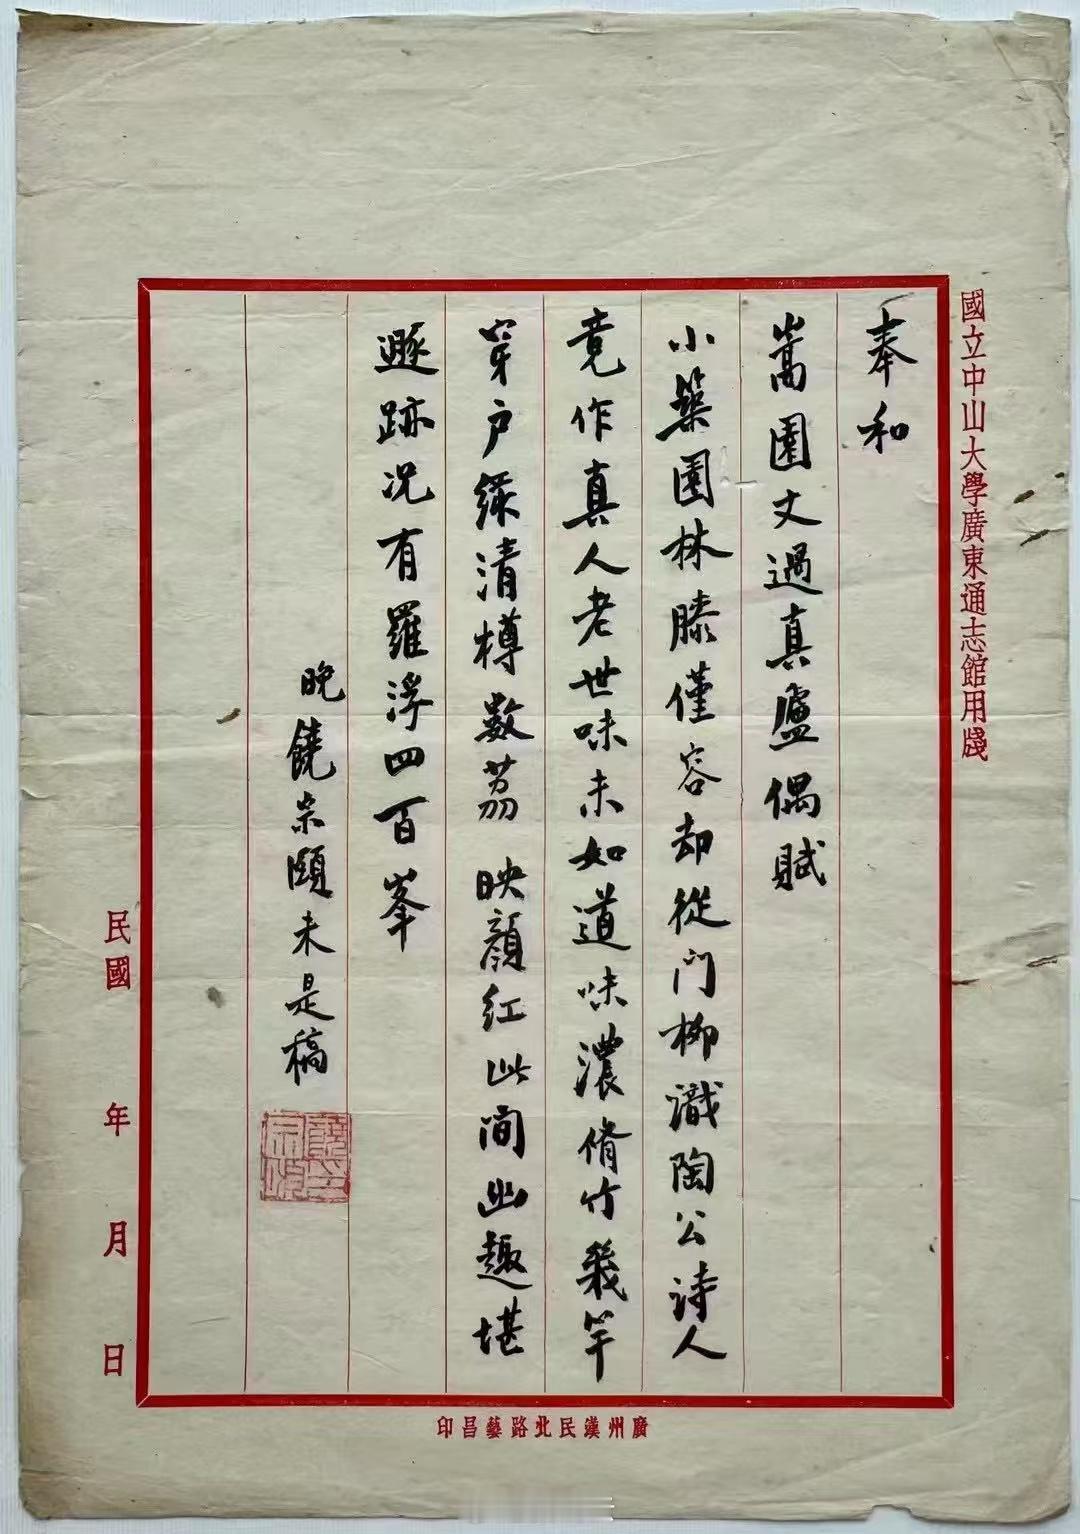 國立中山大學廣東通志館用牋
奉和
嵩園丈過真廬偶賦
小築園林膝僅容却從門柳識陶公詩人
竟作真人老世味未如道味濃脩竹幾竿
穿戶綠清樽數荔映顏紅此间幽趣堪
遯跡况有羅浮四百峯
晚饒宗頤未是稿
饒宗頤印
民國 年 月 日
廣州漢民北路藝昌印